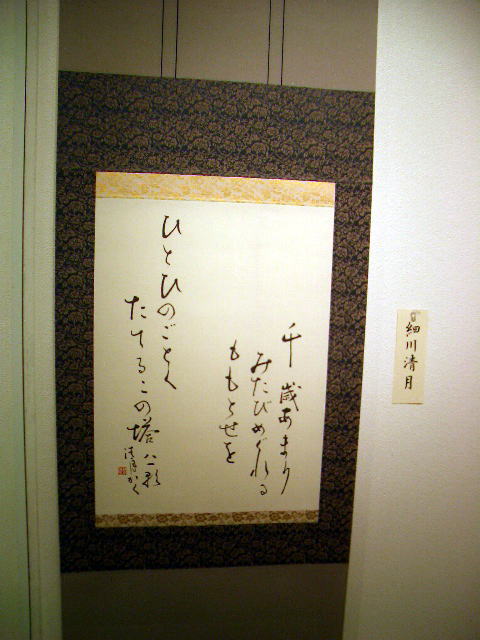 千歳あまり
みたびめぐれる
ももとせを
ひとひのごとく
たてるこの塔
八郎
清月かく
細川清月